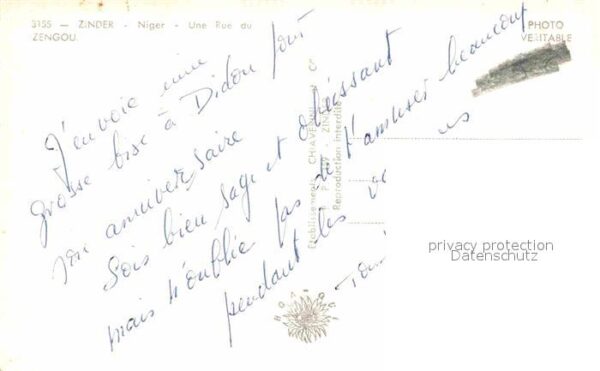 3155 — ZINDER - Niger - Une Rue du
ZENGOU.
PHOTO
VERITABLE
J'envoie une
grosse bise à Didou pour
son anniversaire
Sois bien sage et obéissant
mais n'oublie pas de t'amuser beaucoup
pendant les
Etablissements CHIAVERINI
ZIN
Reproduction interdite
HOA-QUI
privacy protection
Datenschutz